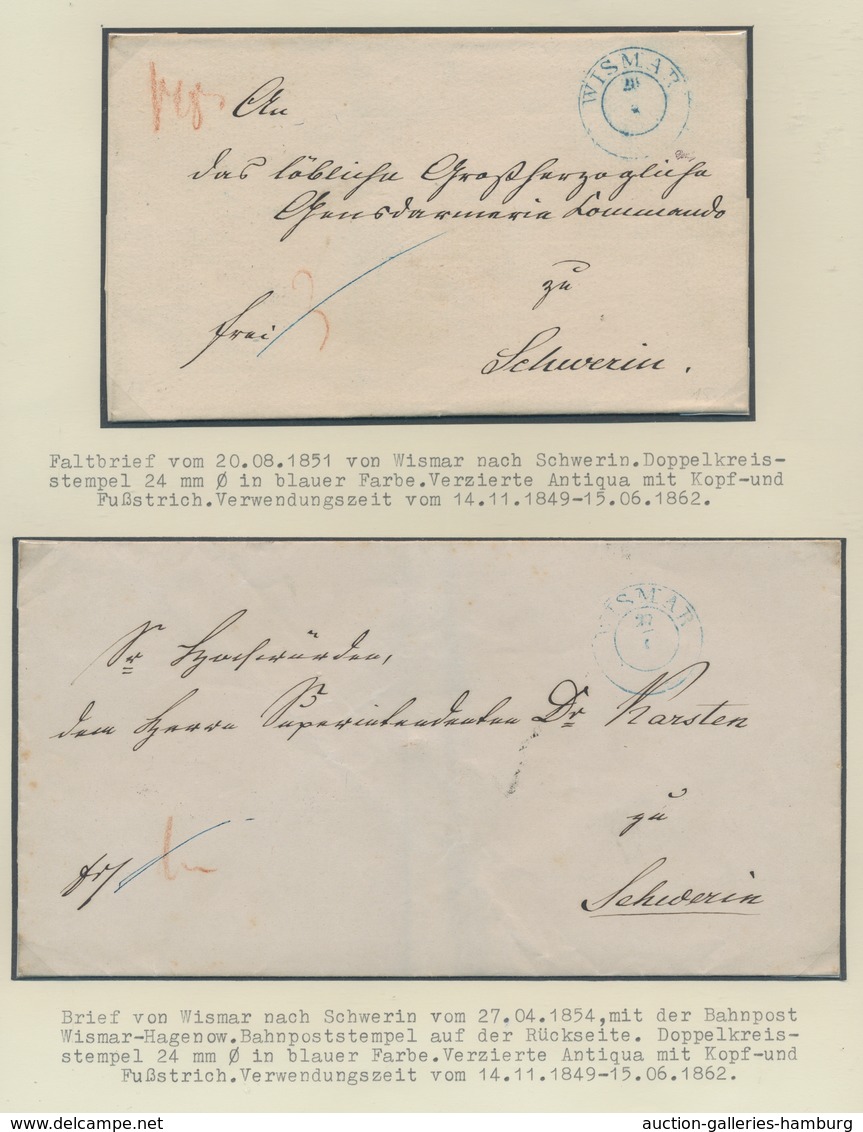 WISMAR
20
An
das löbliche Großherzogliche
Gensdarmerie Kommando
zu
frei
Schwerin.
Faltbrief vom 20.08.1851 von Wismar nach Schwerin.Doppelkreis-
stempel 24 mm Ø in blauer Farbe.Verzierte Antiqua mit Kopf-und
Fußstrich.Verwendungszeit vom 14.11.1849-15.06.1862.
WISMAR
27
Sr Hochwürden,
dem Herrn Superintendenten Dr Karsten
zu
Schwerin
Brief von Wismar nach Schwerin vom 27.04.1854,mit der Bahnpost
Wismar-Hagenow.Bahnpoststempel auf der Rückseite. Doppelkreis-
stempel 24 mm Ø in blauer Farbe.Verzierte Antiqua mit Kopf-und
Fußstrich.Verwendungszeit vom 14.11.1849-15.06.1862.
auction-galleries-hamburg